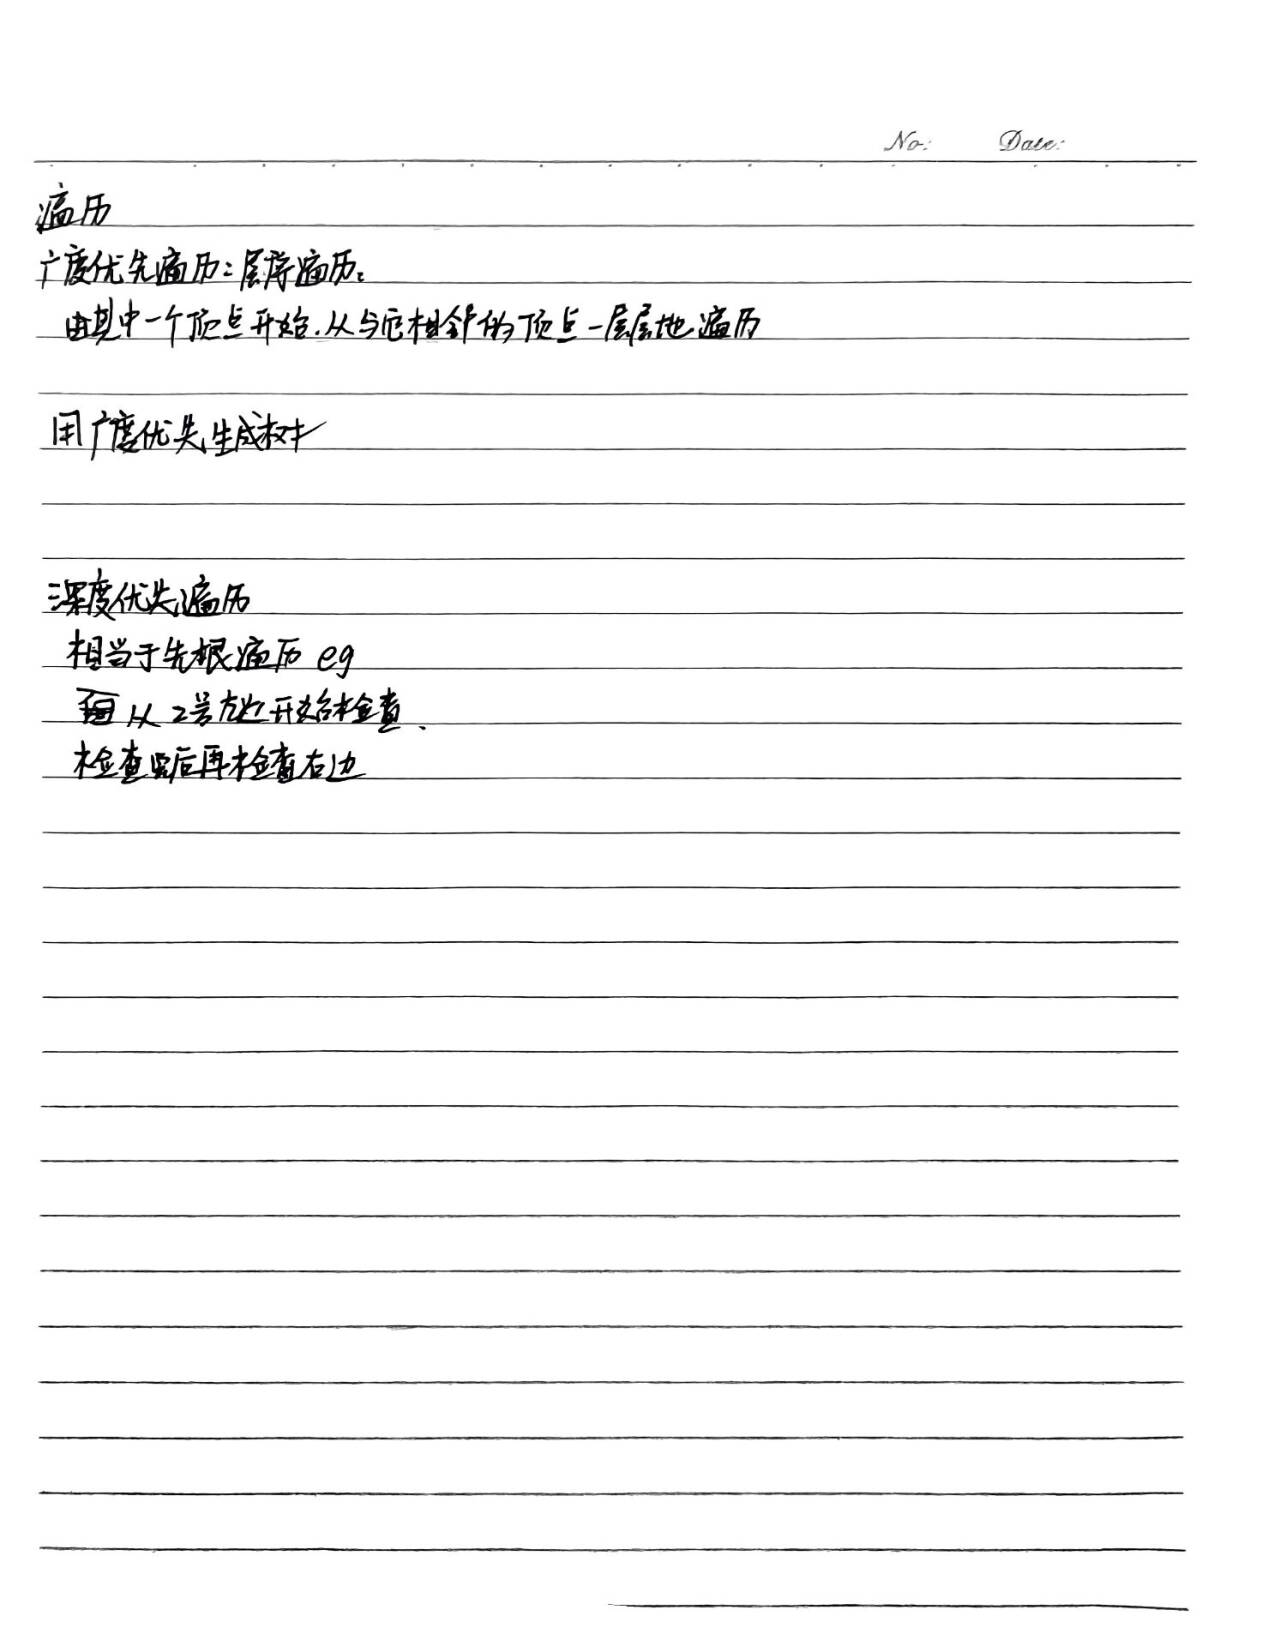 No: Date:
遍历
广度优先遍历:层序遍历。
由其中一个顶点开始.从与它相邻的顶点一层层地遍历
用广度优先生成树
深度优先遍历
相当于先根遍历 eg
从2号左边开始检查、
检查完后再检查右边